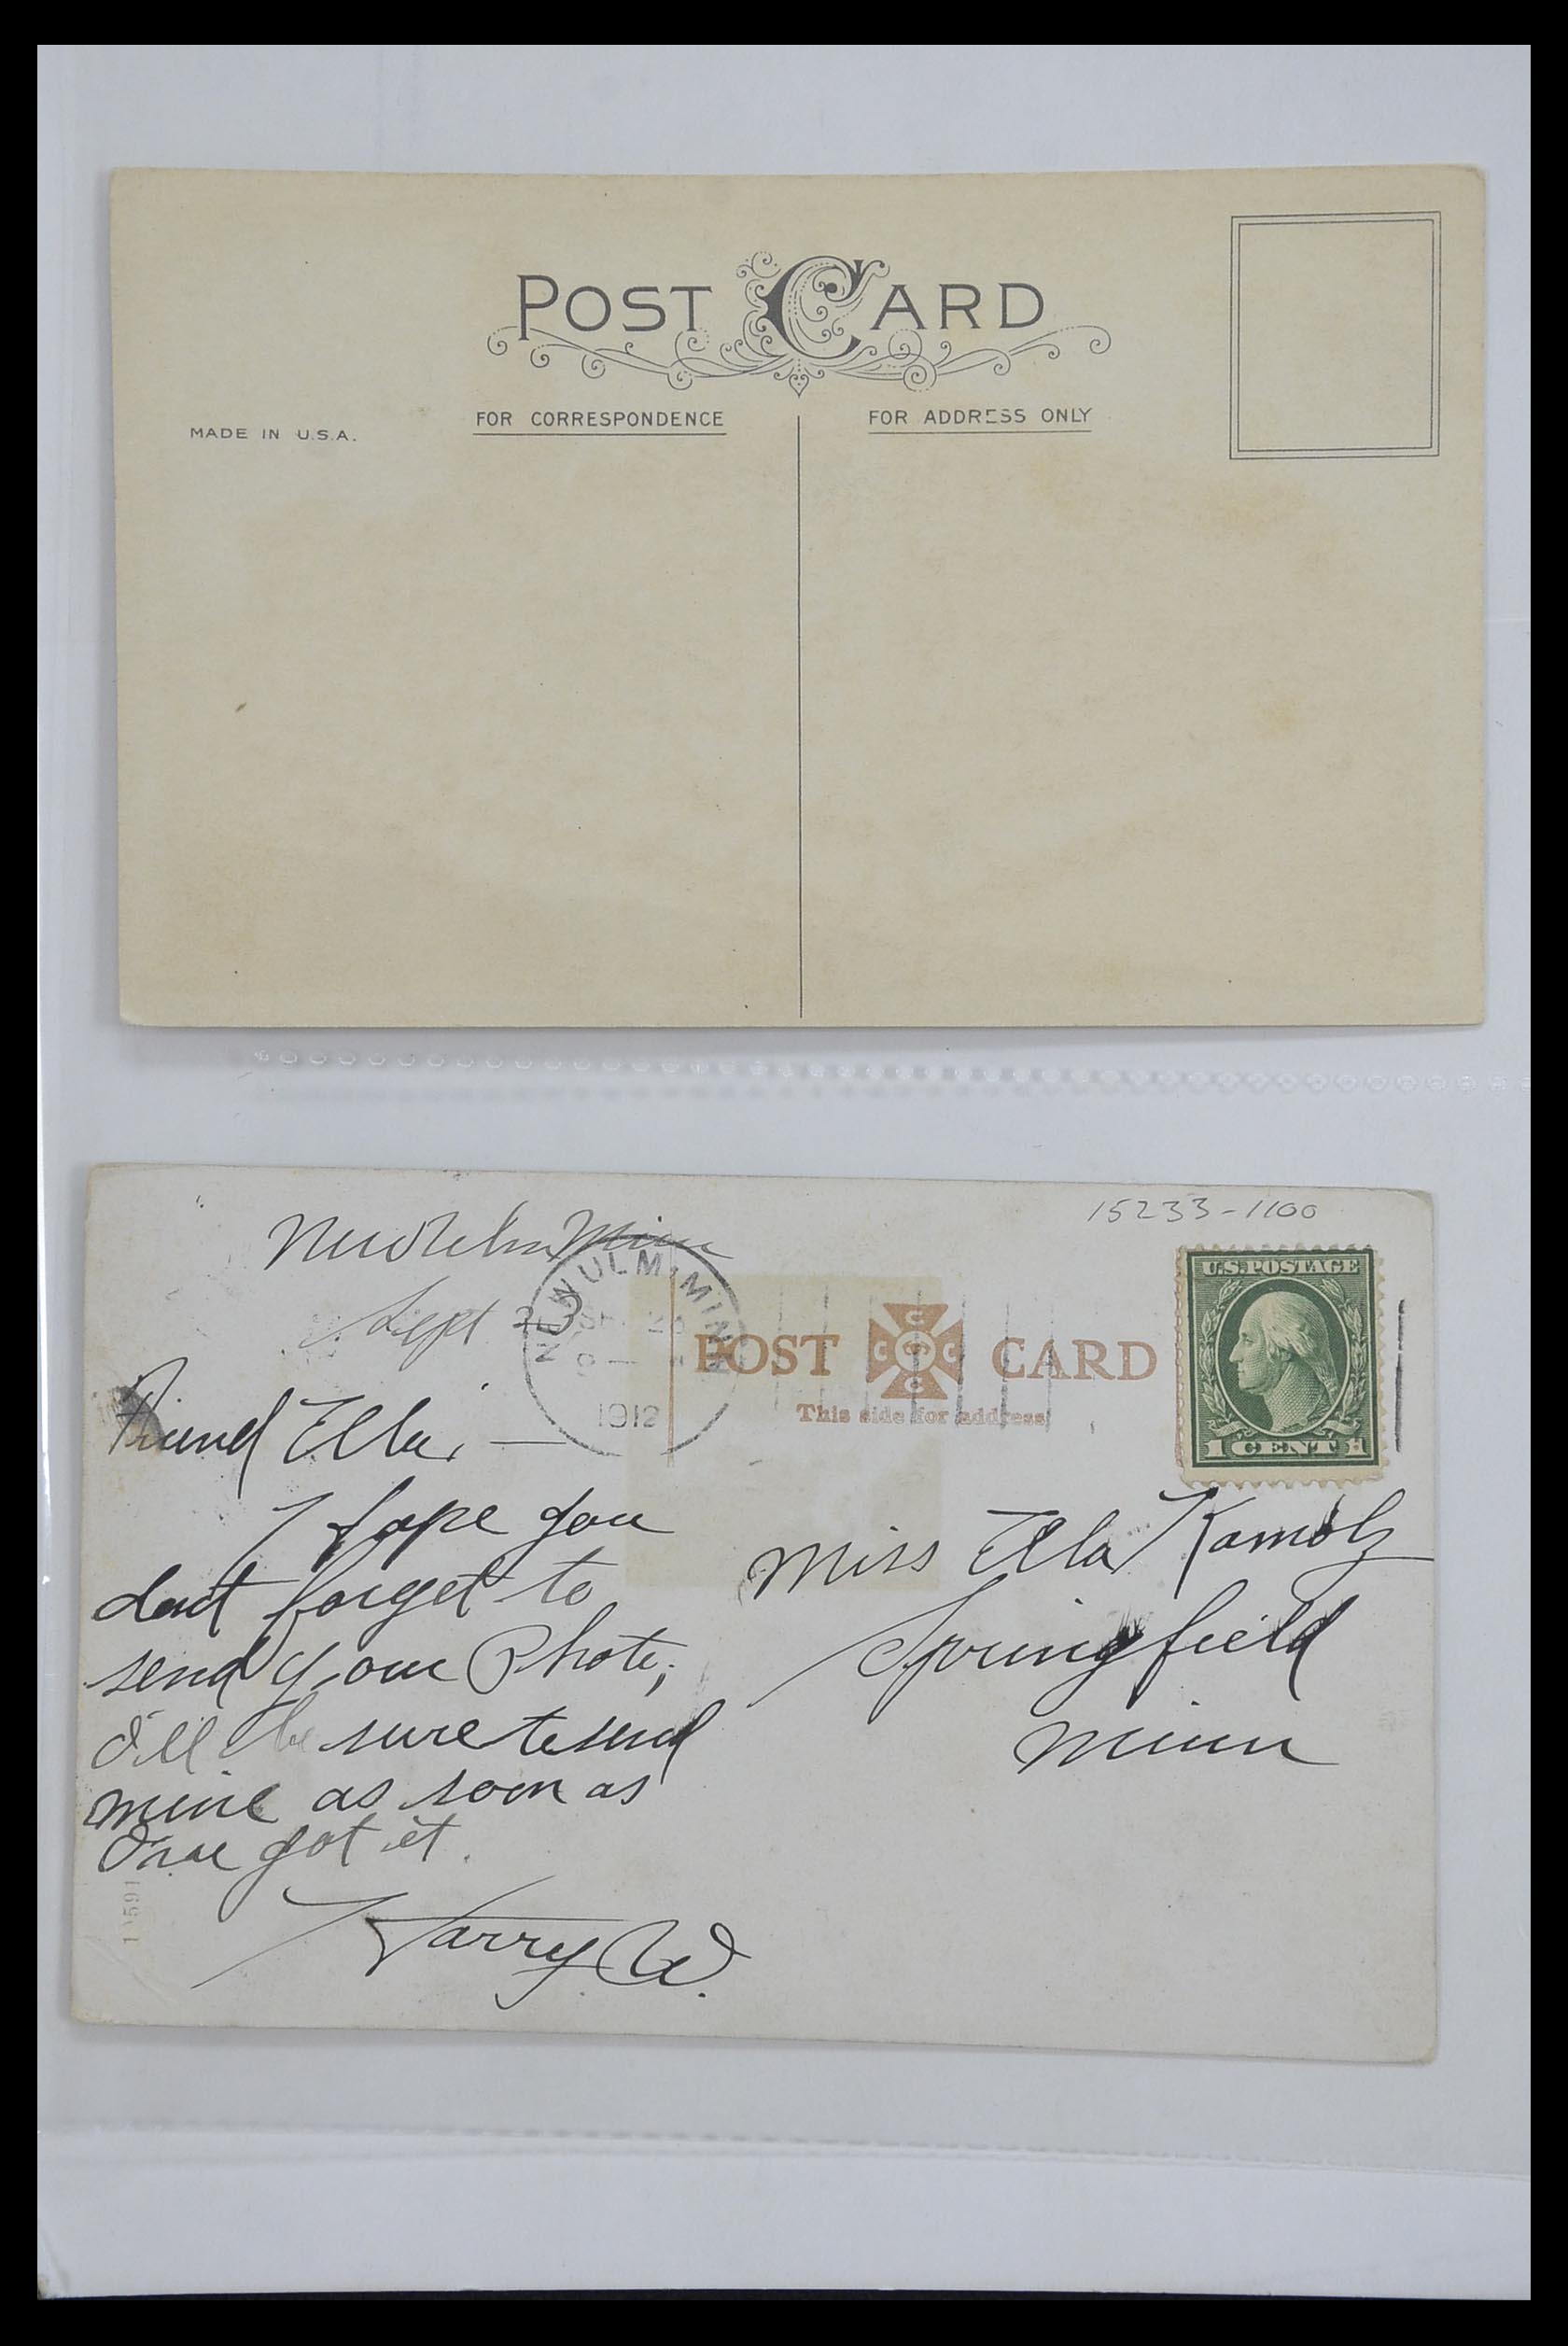 POST CARD
FOR CORRESPONDENCE
FOR ADDRESS ONLY
MADE IN U.S.A.
15233-1100
New Ulm Minn
Sept
NEW ULM, MINN
1912
POST CARD
This side for address
U.S. POSTAGE
1 CENT 1
Friend Ella, —
I hope you
dont forget to
send your Photo;
I'll be sure to send
mine as soon as
I have got it.
Harry W.
Miss Ella Kamolz
Springfield
Minn